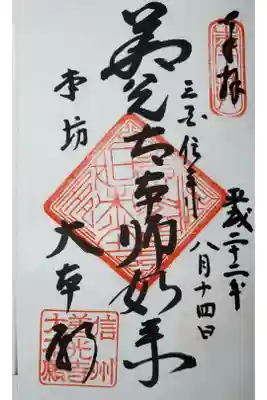 奉拝
平成二十二年
八月十四日
三国伝来
善光寺本師如来
本坊 大本願
信州
善光寺
大本願